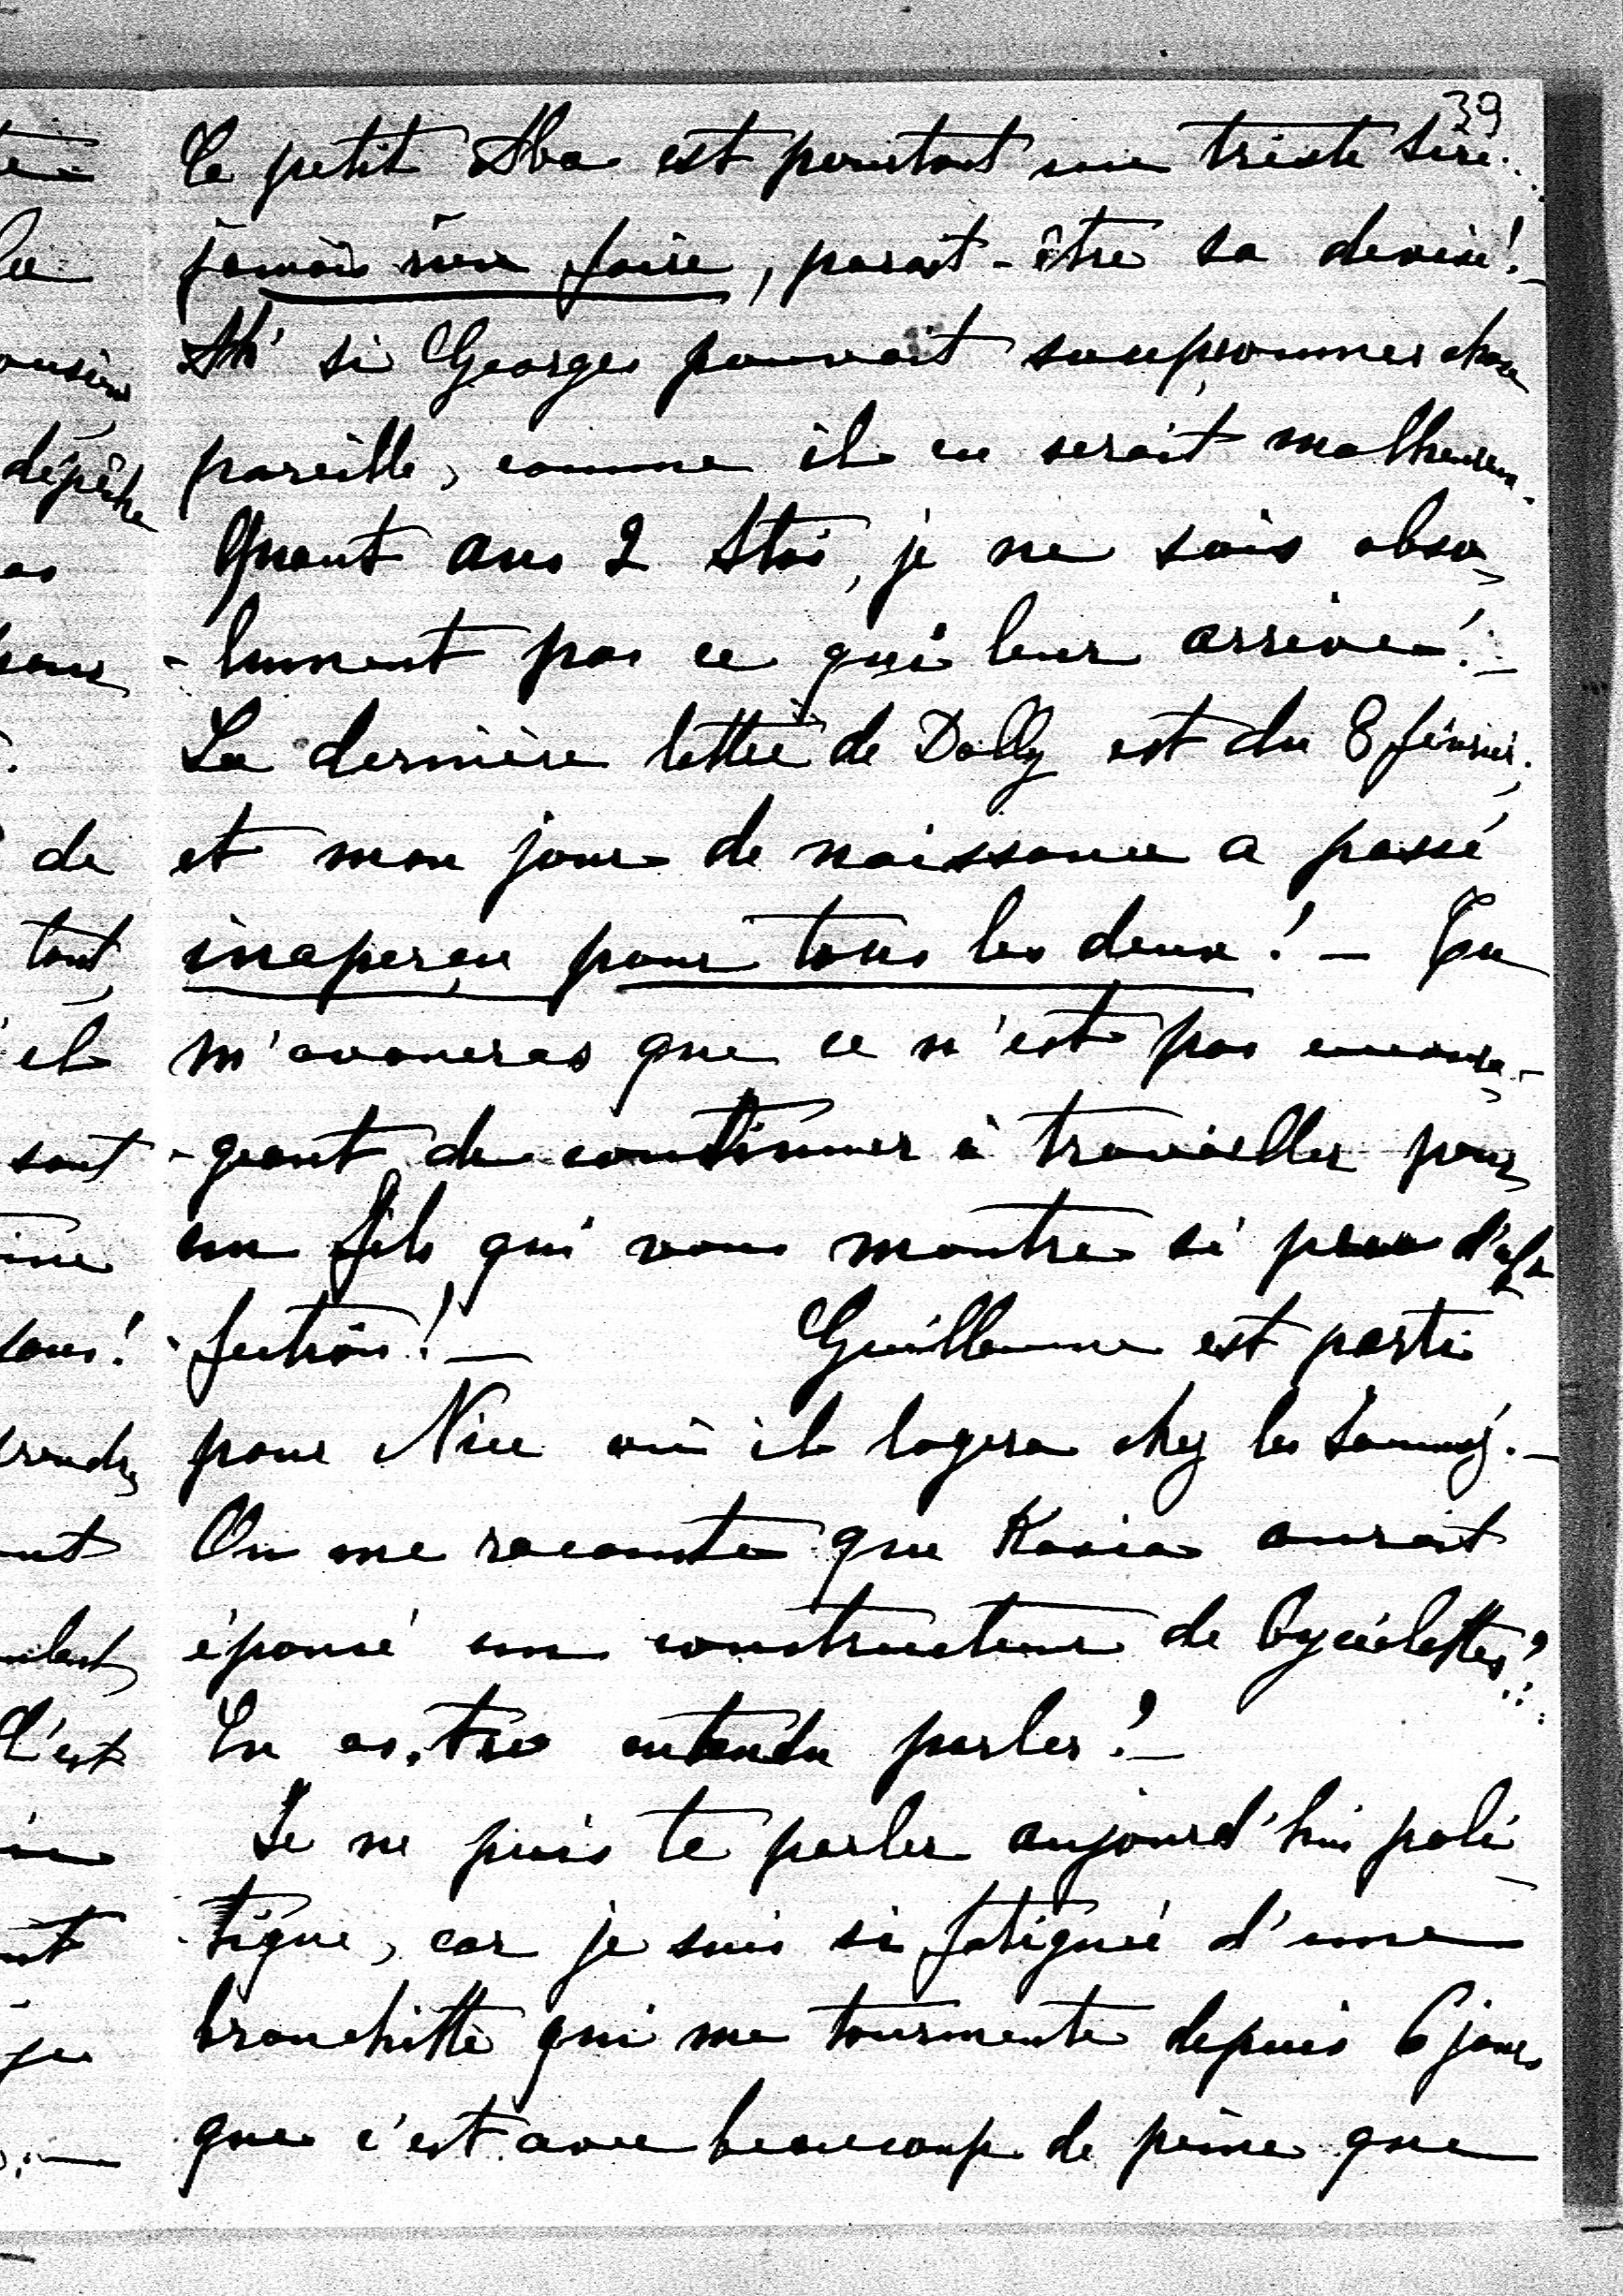 39
Ce petit Aba est pourtant un triste sire...
jamais rien faire, parait-être sa devise!-
Ah! si Georges pouvait soupçonner chose
pareille, comme il en serait malheureux.
Quant aus 2 Stoï, je ne sais abso
-lument pas ce qui leur arrive!-
La dernière lettre de Dolly est du 8 février;
et mon jour de naissance a passé
inaperçu pour tous les deux! - Tu
m'avoueras que ce n'est pas encoura-
-geant de continuer à travailler pour
un fils qui vous montre si peu d'af
-fection! - Guillaume est parti
pour Nice où il logera chez les
On me raconte que Kasia aurait
épousé un constructeur de bycielettes?!
En as-tu entendu parler?-
Je ne puis te parler aujourd'hui poli
-tique, car je suis si fatigué d'une
bronchitte qui me tourmente depuis 6 jours
que c'est avec beaucoup de peine que
dépêche
de
tout
il
sont
sous!
C'est